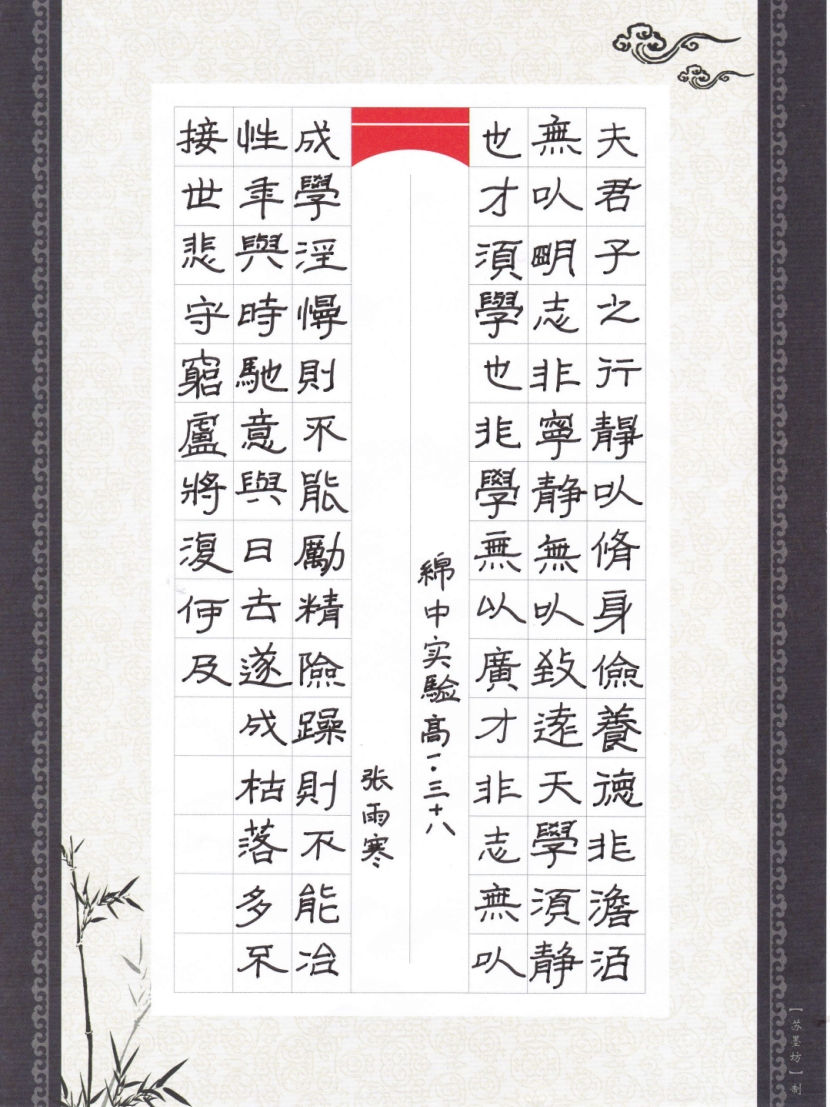 夫君子之行靜以脩身儉養德非澹泊
無以眀志非寧静無以致遠天學須静
也才須學也非學無以廣才非志無以
綿中实驗高一·三十八
张雨寒
成學淫慢則不能勵精險躁則不能冶
性年與時馳意與日去遂成枯落多不
接世悲守窮廬將復何及
【苏墨坊】制